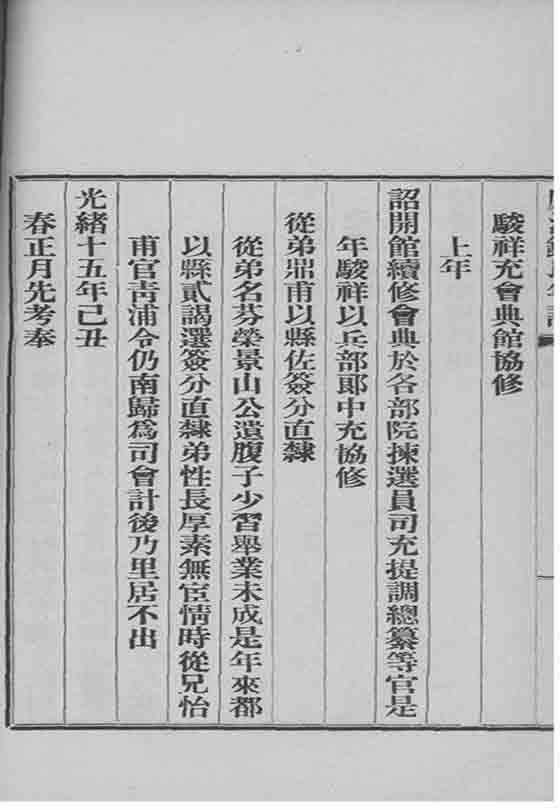 駿祥充會典館協修
上年
詔開館續修會典於各部院揀選員司充提調總纂等官是
年駿祥以兵部郎中充協修
從弟鼎甫以縣佐簽分直隸
從弟名芬榮景山公遺腹子少習舉業未成是年來都
以縣貳謁選簽分直隸弟性長厚素無宦情時從兄怡
甫官青浦令仍南歸爲司會計後乃里居不出
光緒十五年己丑
春正月先考奉